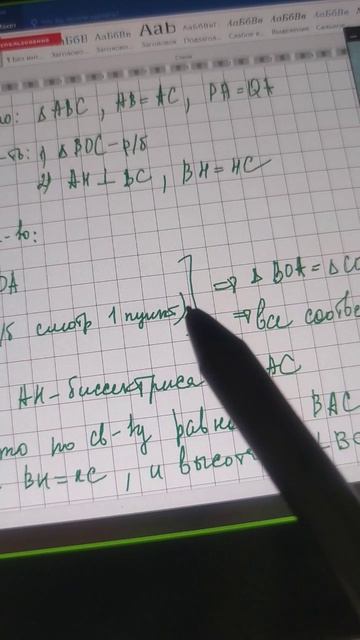 АаБбВ АаБбВ АаБ АаБбВвГ АаБбВвГ АаБбВвГ АаБбВвГ
¶ Без инт... Заголово... Заголово... Заголовок Подзаго... Слабое в... Выделение Сильное
Стили
но: Δ ABC, AB = AC, PA = QA
-ть: 1) Δ BOC - р/б
2) AH ⊥ BC, BH = HC
-во:
OA
/б смотр 1 пункт) ⇒ Δ BOA = Δ CO
⇒ все соотве
AH - биссектриса AC
то по св-ву равно BAC
BH = HC, и высот ⊥ BC